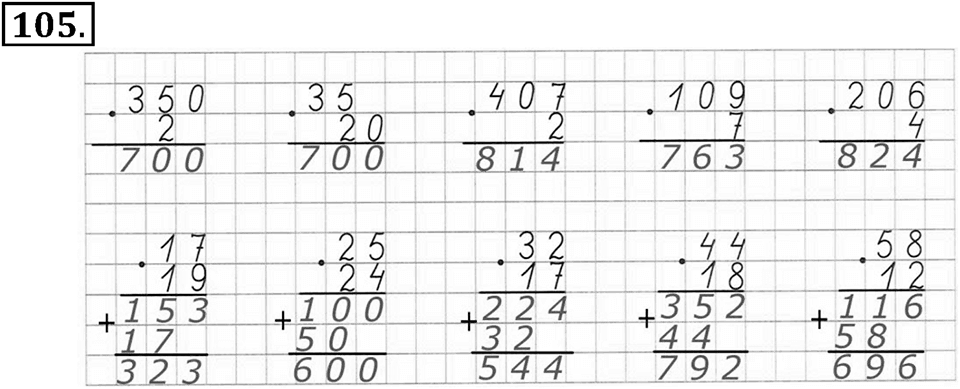 105.
350 35 407 109 206
· 2 · 20 · 2 · 7 · 4
700 700 814 763 824
17 25 32 44 58
· 19 · 24 · 17 · 18 · 12
153 100 224 352 116
+ 17 + 50 + 32 + 44 + 58
323 600 544 792 696